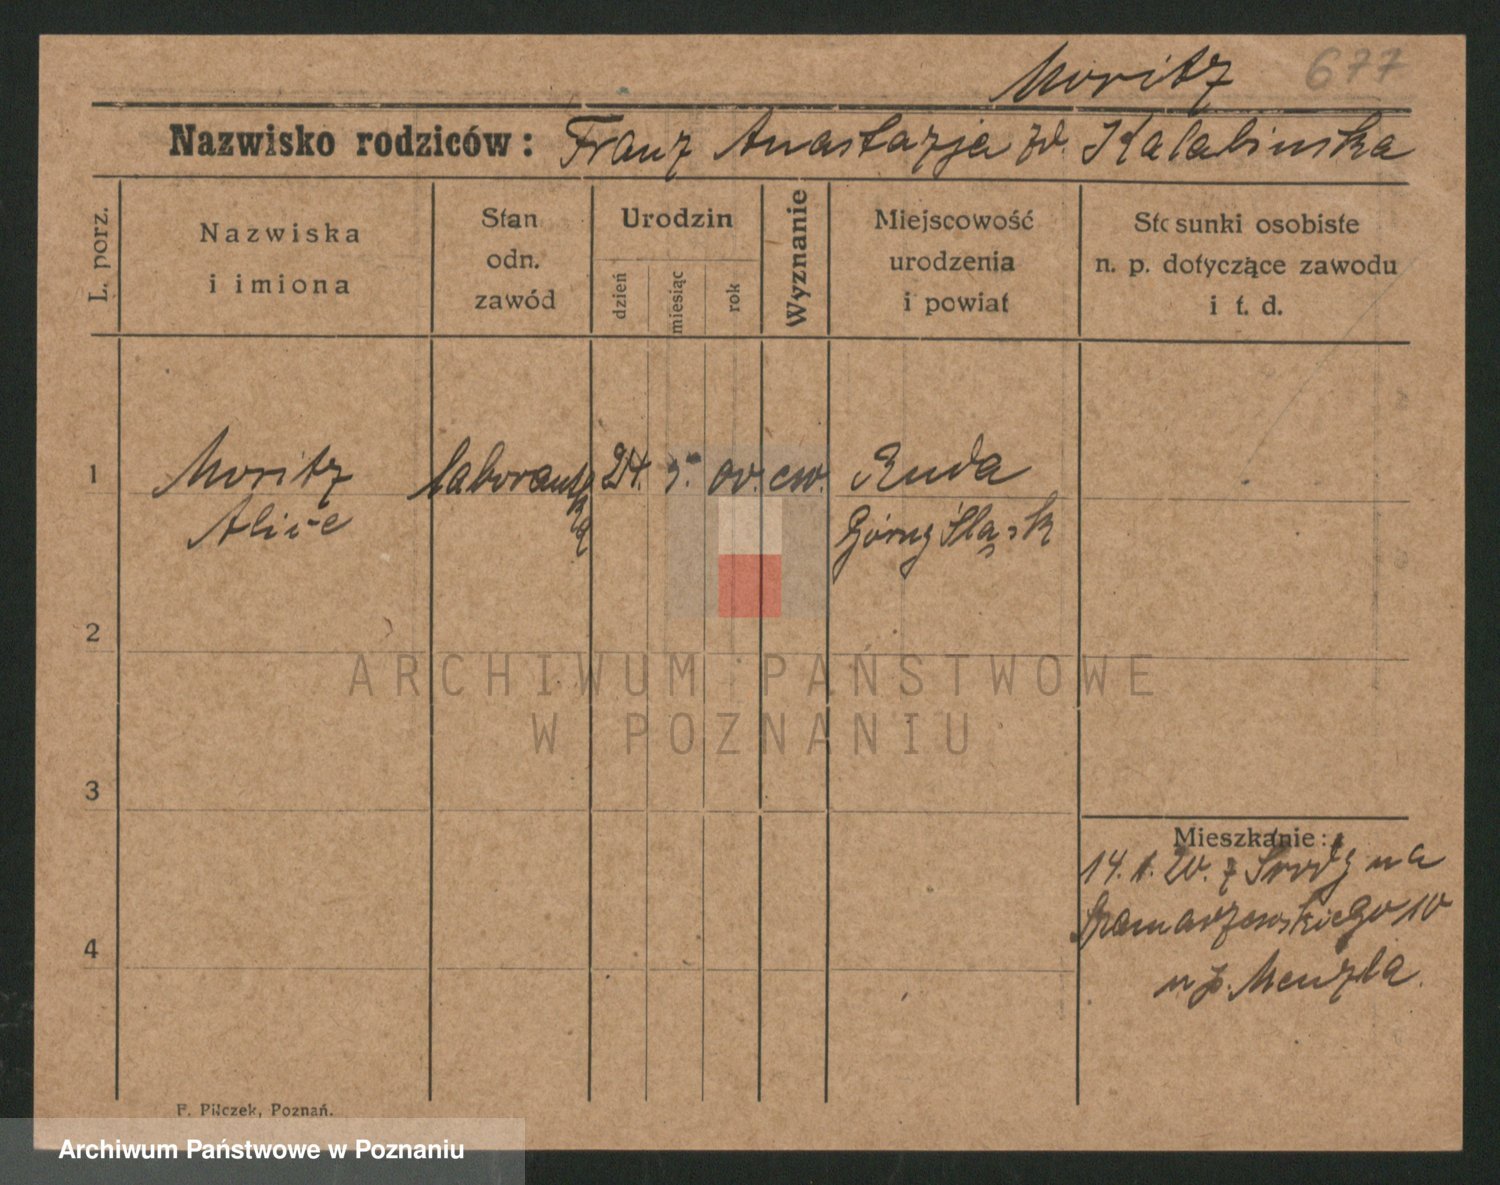 Moritz 677
Nazwisko rodziców: Franz Anastazja zd. Kalabinska
L. porz.
Nazwiska
i imiona
Stan
odn.
zawód
Urodzin
dzień
miesiąc
rok
Wyznanie
Miejscowość
urodzenia
i powiat
Stosunki osobiste
n. p. dotyczące zawodu
i t. d.
1 Moritz laborantka 24. 00. ew. Ruda
Alice Górny Śląsk
2
3
4
Mieszkanie:
14. 1. 20. z Środy na
Szamarzewskiego 10
u p. Menzla.
F. Pilczek, Poznań.
ARCHIWUM PAŃSTWOWE
W POZNANIU
Archiwum Państwowe w Poznaniu